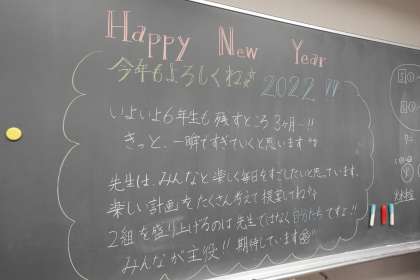 Happy New Year
今年もよろしくね☆
2022
いよいよ6年生も残すところ3ヶ月〜!!
きっと、一瞬ですぎていくと思います
先生は、みんなと楽しく毎日をすごしたいと思っています。
楽しい計画をたくさん考えて提案してね
2組を盛り上げるのは先生ではなく自分たちですよ!!
みんなが主役!! 期待しています